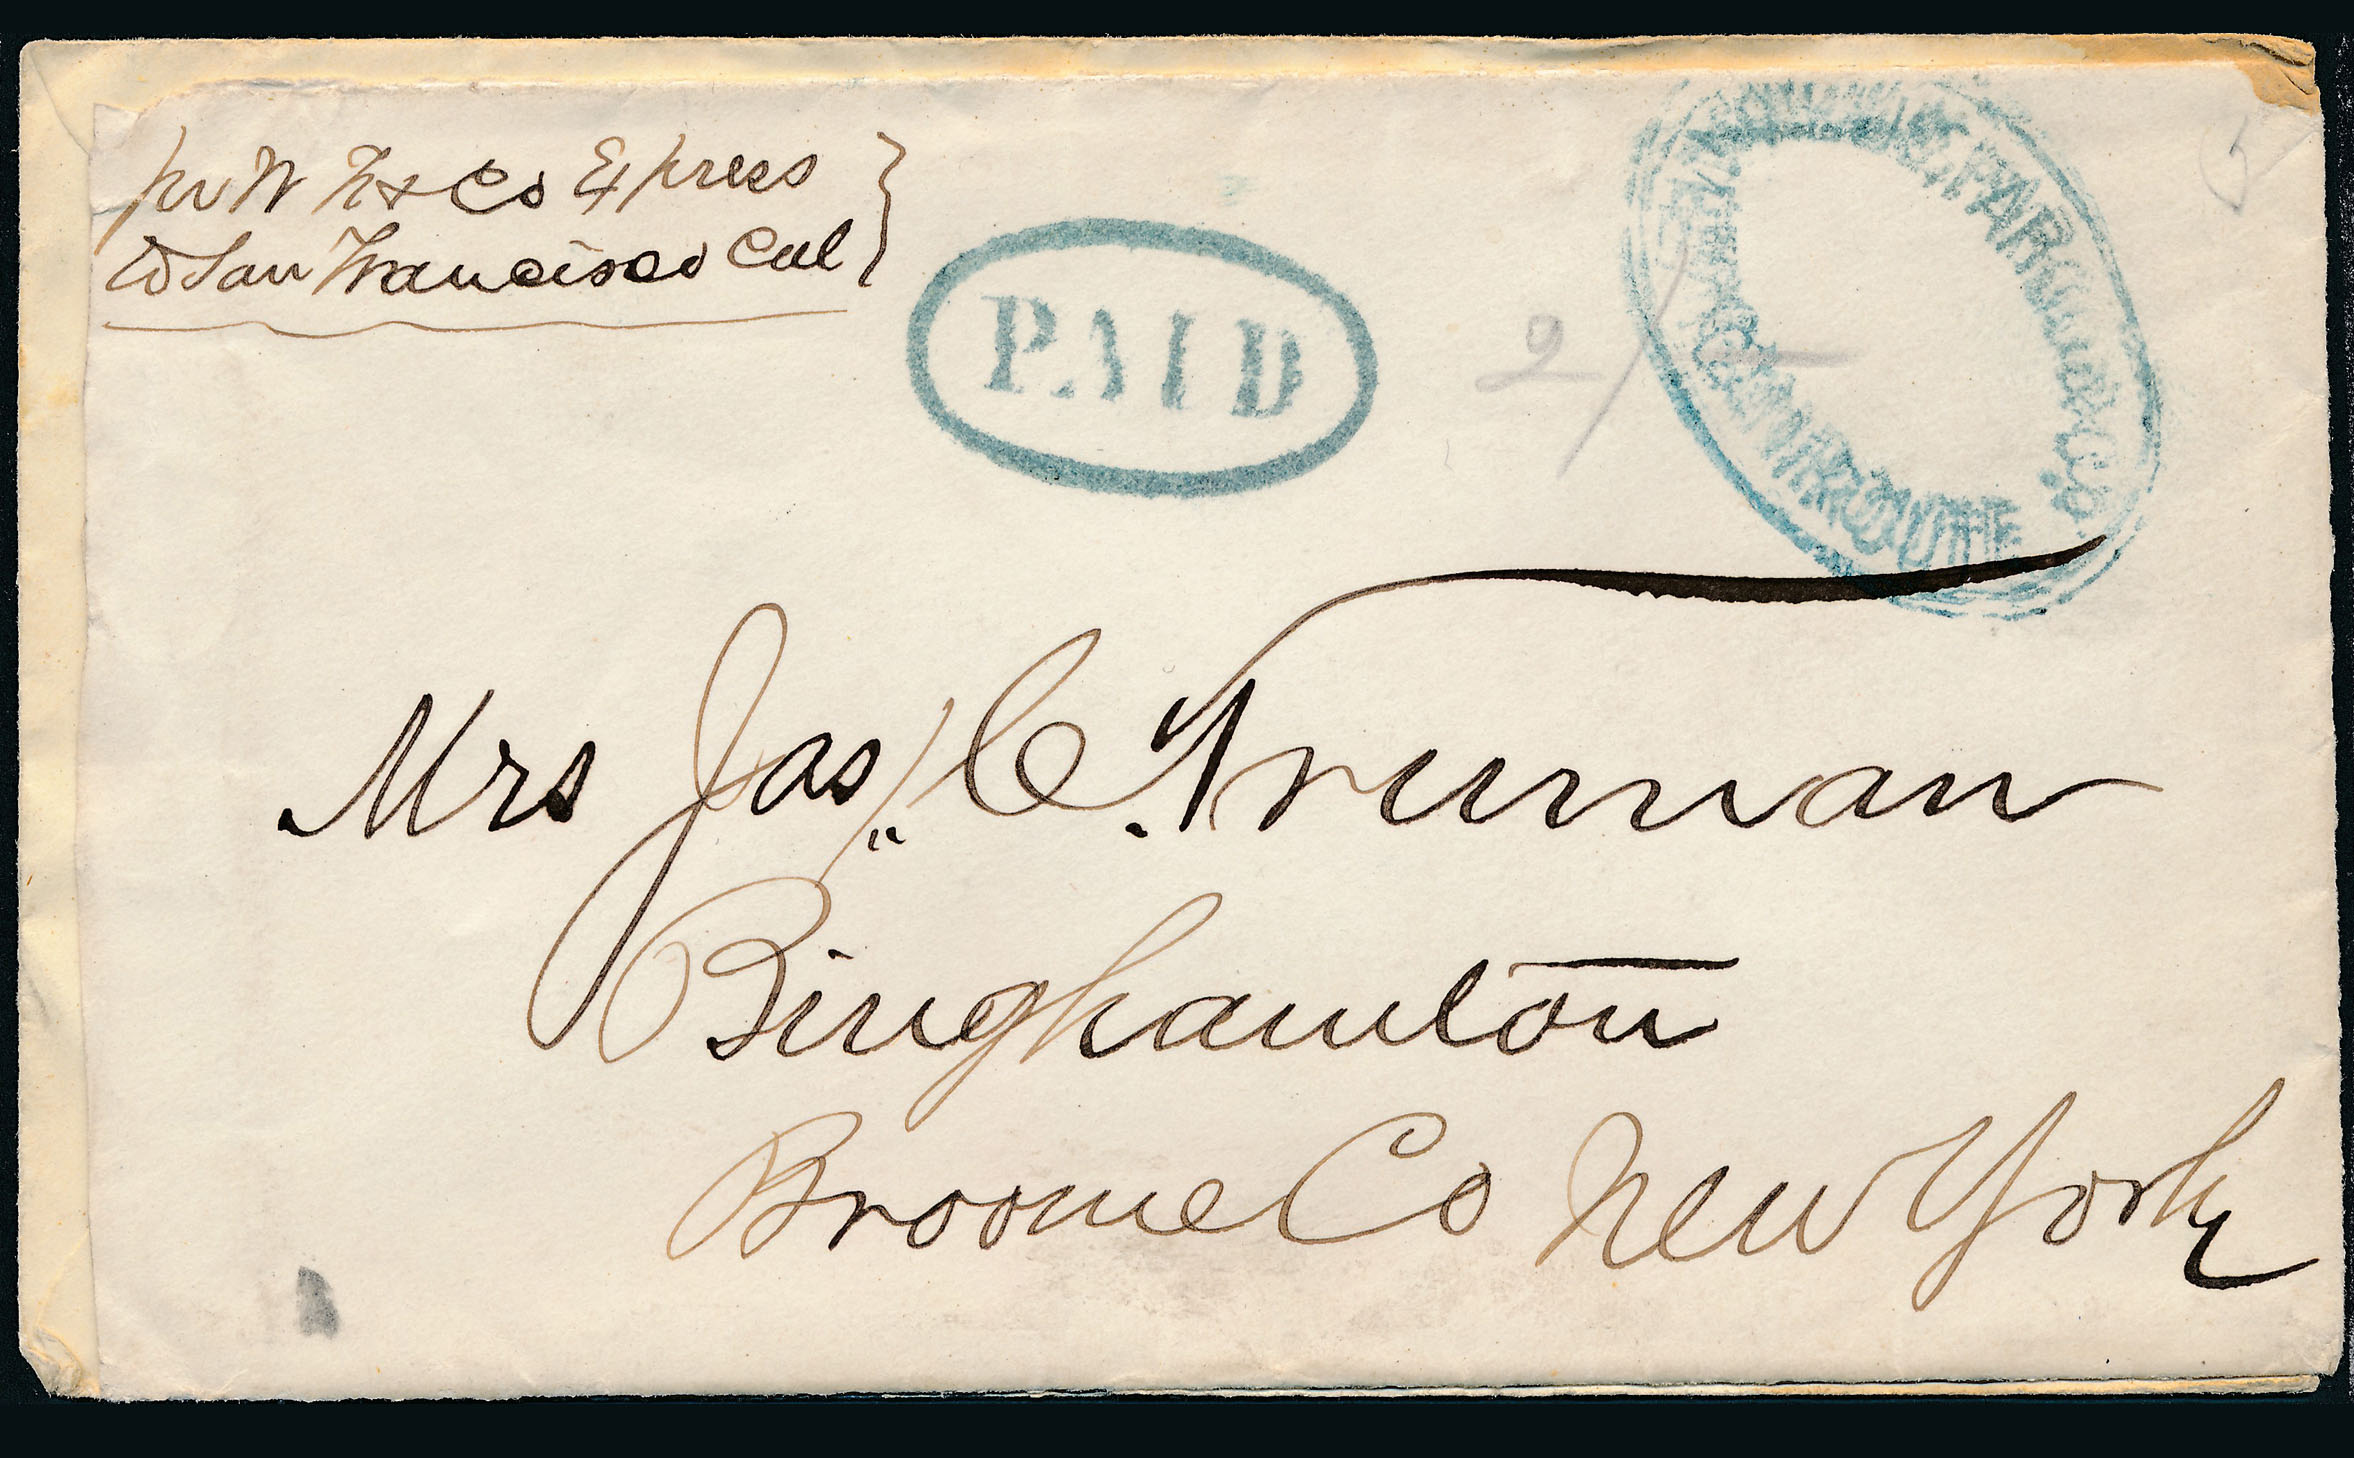 per W F & Co Express
to San Francisco Cal
PAID
FAR
ROUTE
2/
Mrs Jas. C. Truman
Binghamton
Broome Co New York